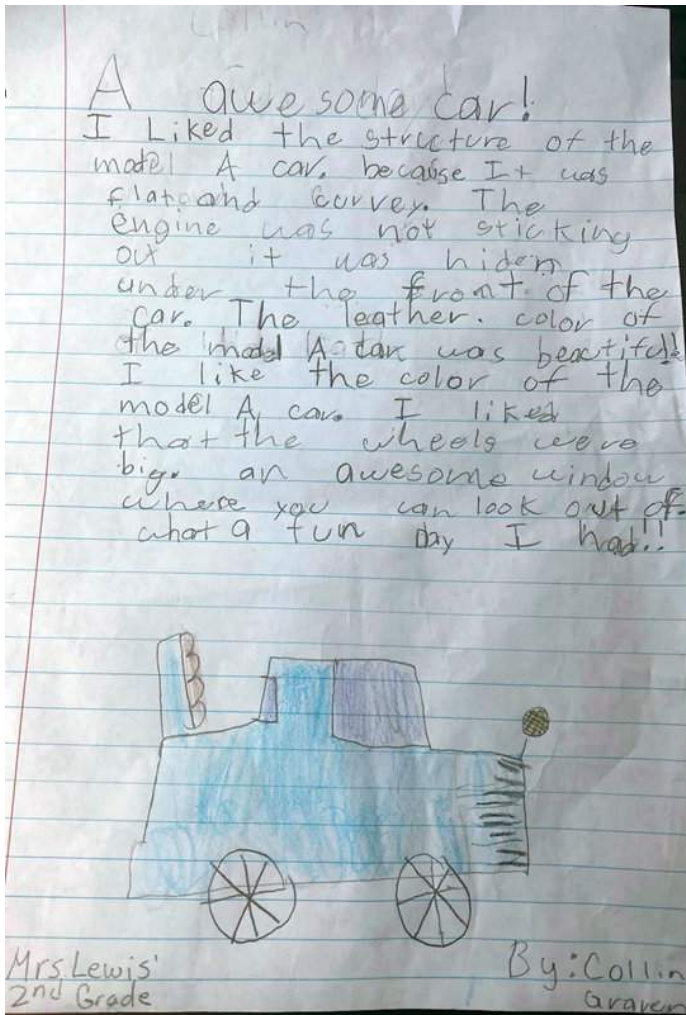 Collin
A awesome car!
I Liked the structure of the
model A car. because It was
flat and curvey. The
engine was not sticking
out it was hiden
under the front of the
car. The leather. color of
the model A car was beautiful!
I like the color of the
model A car. I liked
that the wheels were
big. an awesome window
where you can look out of.
what a fun day I had!!
Mrs. Lewis'
2nd Grade
By: Collin
Graven